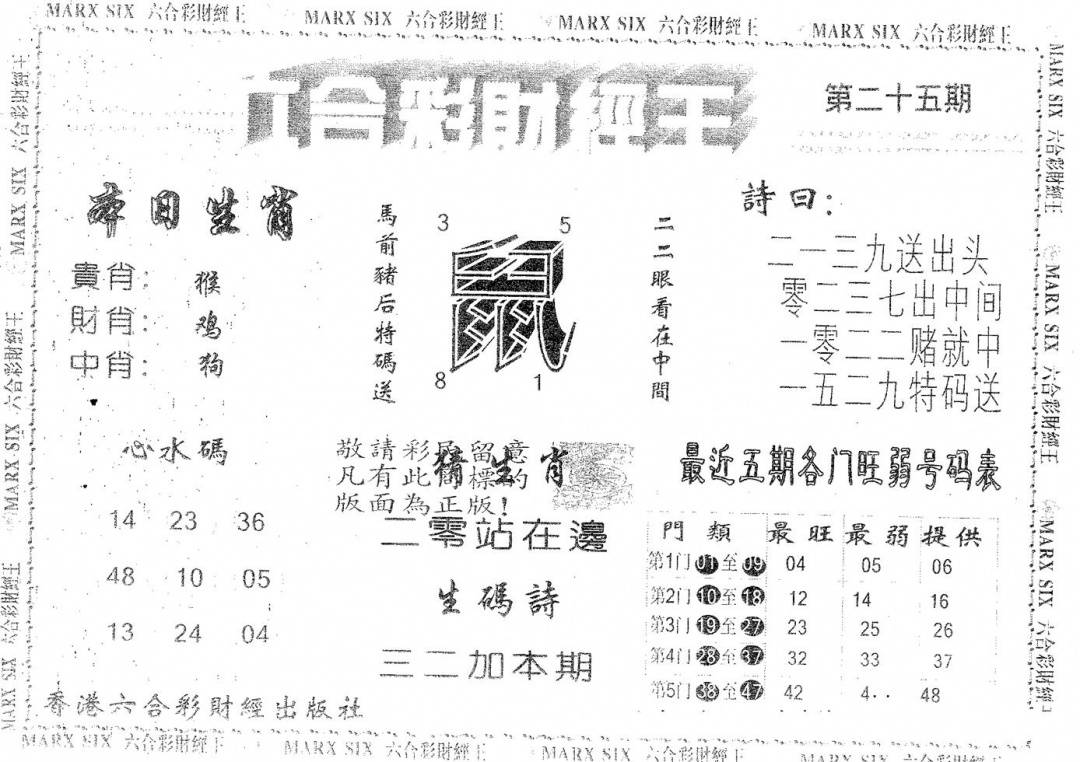 MARX SIX 六合彩財經王 MARX SIX 六合彩財經王 MARX SIX 六合彩財經王 MARX SIX 六合彩財經王
六合彩財經王
第二十五期
本日生肖
貴肖：猴
財肖：鸡
中肖：狗
馬前豬后特碼送
3 5
鼠
8 1
二二眼看在中間
詩曰：
二一三九送出头
零二三七出中间
一零二二赌就中
一五二九特码送
心水碼
14 23 36
48 10 05
13 24 04
敬請彩民留意
凡有此商標的
版面為正版！
猜生肖
二零站在邊
生碼詩
三二加本期
最近五期各门旺弱号码表
門類 最旺 最弱 提供
第1门 01至09 04 05 06
第2门 10至18 12 14 16
第3门 19至27 23 25 26
第4门 28至37 32 33 37
第5门 38至47 42 4.. 48
香港六合彩財經出版社
MARX SIX 六合彩財經王 MARX SIX 六合彩財經王 MARX SIX 六合彩財經王 MARX SIX 六合彩財經王
MARX SIX 六合彩財經王 MARX SIX 六合彩財經王 MARX SIX 六合彩財經王
MARX SIX 六合彩財經王 MARX SIX 六合彩財經王 MARX SIX 六合彩財經王